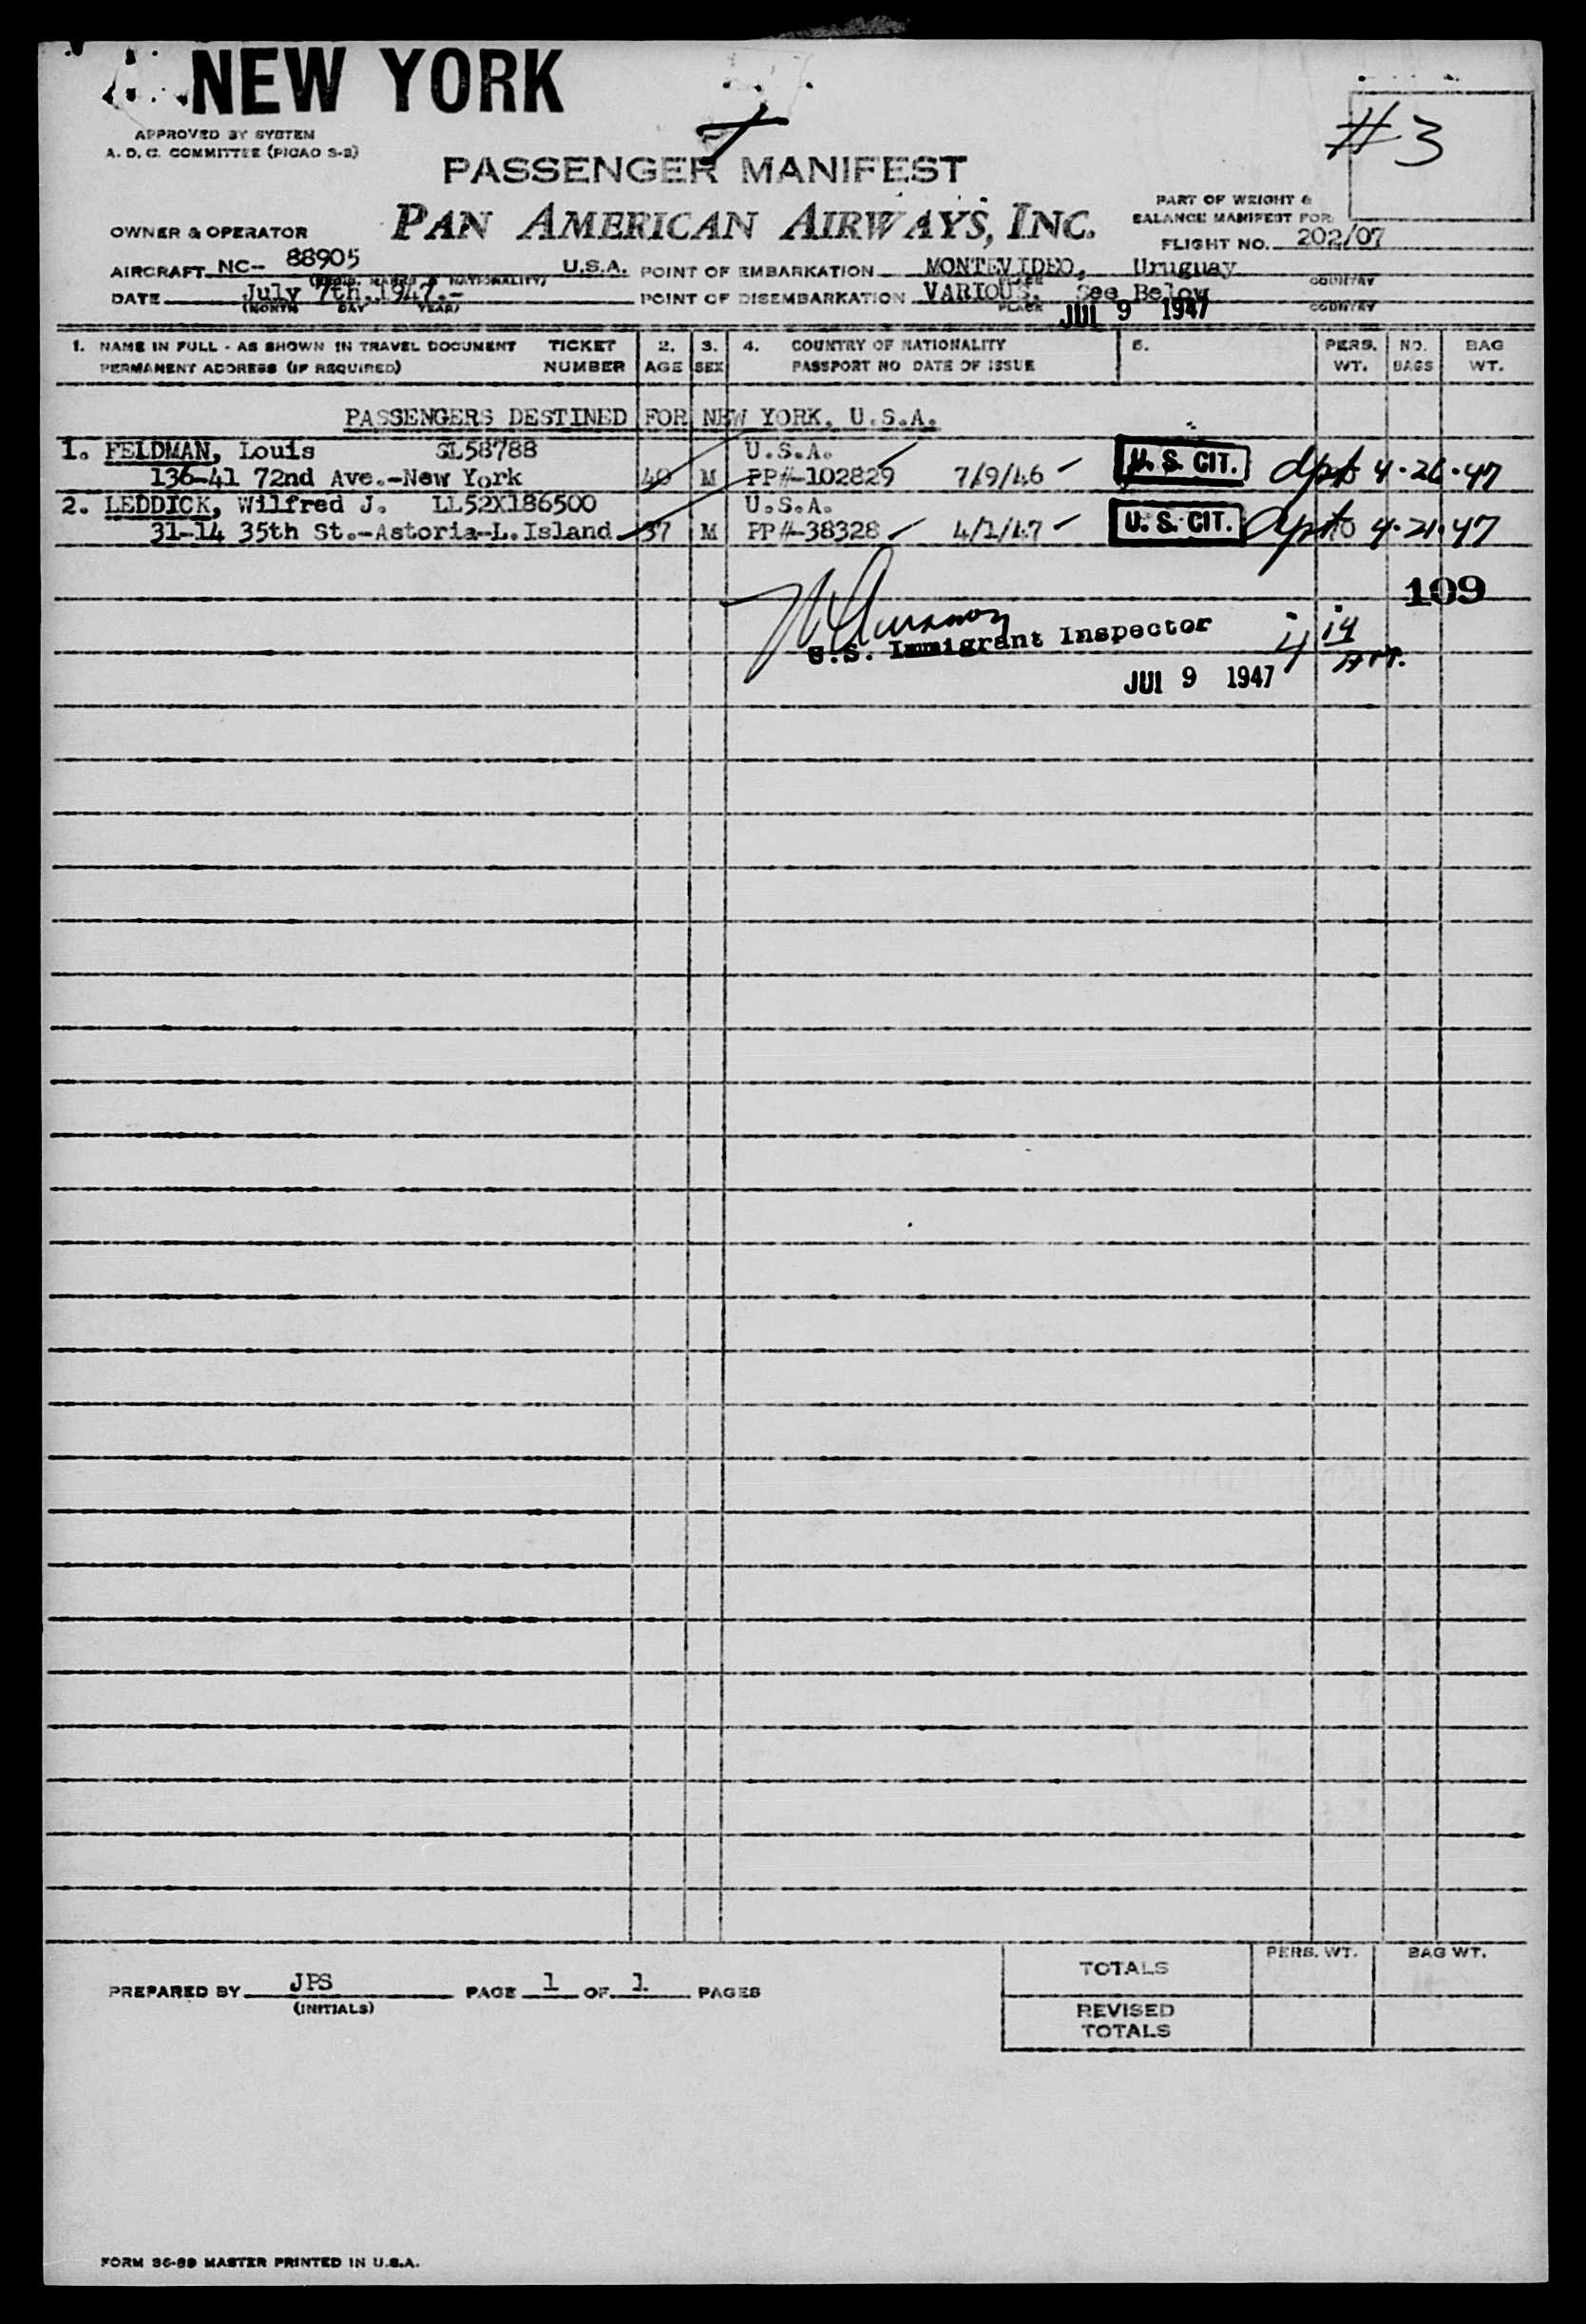 NEW YORK
APPROVED BY SYSTEM
A. D. C. COMMITTEE (PICAO S-2)
#3
PASSENGER MANIFEST
PAN AMERICAN AIRWAYS, INC.
PART OF WEIGHT &
BALANCE MANIFEST FOR
FLIGHT NO. 202/07
OWNER & OPERATOR
AIRCRAFT NC- 88905 U.S.A. POINT OF EMBARKATION MONTEVIDEO, Uruguay
(REGIS. MARKS & NATIONALITY) PLACE COUNTRY
DATE July 7th. 1947.- POINT OF DISEMBARKATION VARIOUS. See Below
(MONTH DAY YEAR) PLACE COUNTRY
JUL 9 1947
1. NAME IN FULL - AS SHOWN IN TRAVEL DOCUMENT TICKET 2. 3. 4. COUNTRY OF NATIONALITY 5. PERS. NO. BAG
PERMANENT ADDRESS (IF REQUIRED) NUMBER AGE SEX PASSPORT NO DATE OF ISSUE WT. BAGS WT.
PASSENGERS DESTINED FOR NEW YORK, U.S.A.
1. FELDMAN, Louis SL58788 U.S.A.
136-41 72nd Ave.-New York 40 M PP#-102829 7/9/46 U. S. CIT. dpt 4-26-47
2. LEDDICK, Wilfred J. LL52X186500 U.S.A.
31-14 35th St.-Astoria-L.Island 37 M PP#-38328 4/1/47 U. S. CIT. dpt 4-21-47
109
U.S. Immigrant Inspector
JUL 9 1947
PREPARED BY JPS PAGE 1 OF 1 PAGES
(INITIALS)
PERS. WT. BAG WT.
TOTALS
REVISED
TOTALS
FORM 36-89 MASTER PRINTED IN U.S.A.